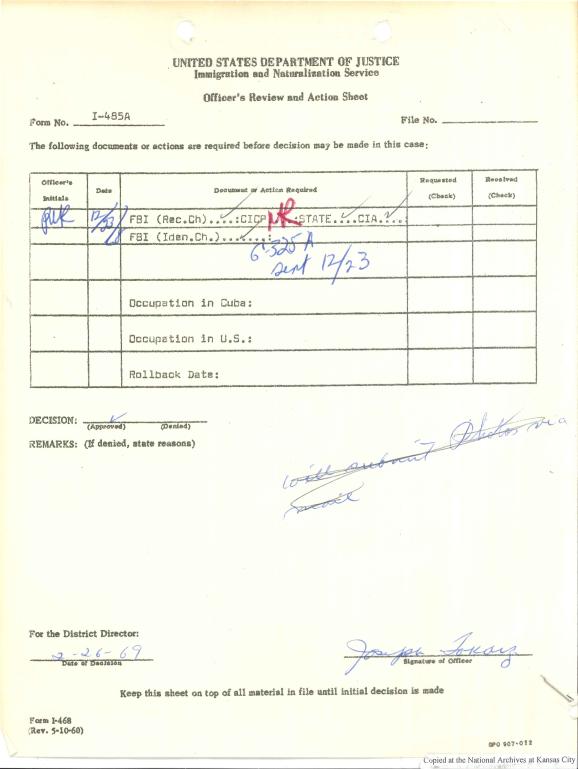 UNITED STATES DEPARTMENT OF JUSTICE
Immigration and Naturalization Service
Officer's Review and Action Sheet
Form No. I-485A File No.
The following documents or actions are required before decision may be made in this case:
Officer's Initials Date Document or Action Required Requested (Check) Received (Check)
12/23/68 FBI (Rec.Ch)....:CICP NR :STATE....CIA....
FBI (Iden.Ch.).......:
G-325A
sent 12/23
Occupation in Cuba:
Occupation in U.S.:
Rollback Date:
DECISION: ✓
(Approved) (Denied)
REMARKS: (If denied, state reasons)
will submit Photos via
mail
For the District Director:
2-26-69 Joseph
Date of Decision Signature of Officer
Keep this sheet on top of all material in file until initial decision is made
Form I-468
(Rev. 5-10-60)
GPO 907-012
Copied at the National Archives at Kansas City